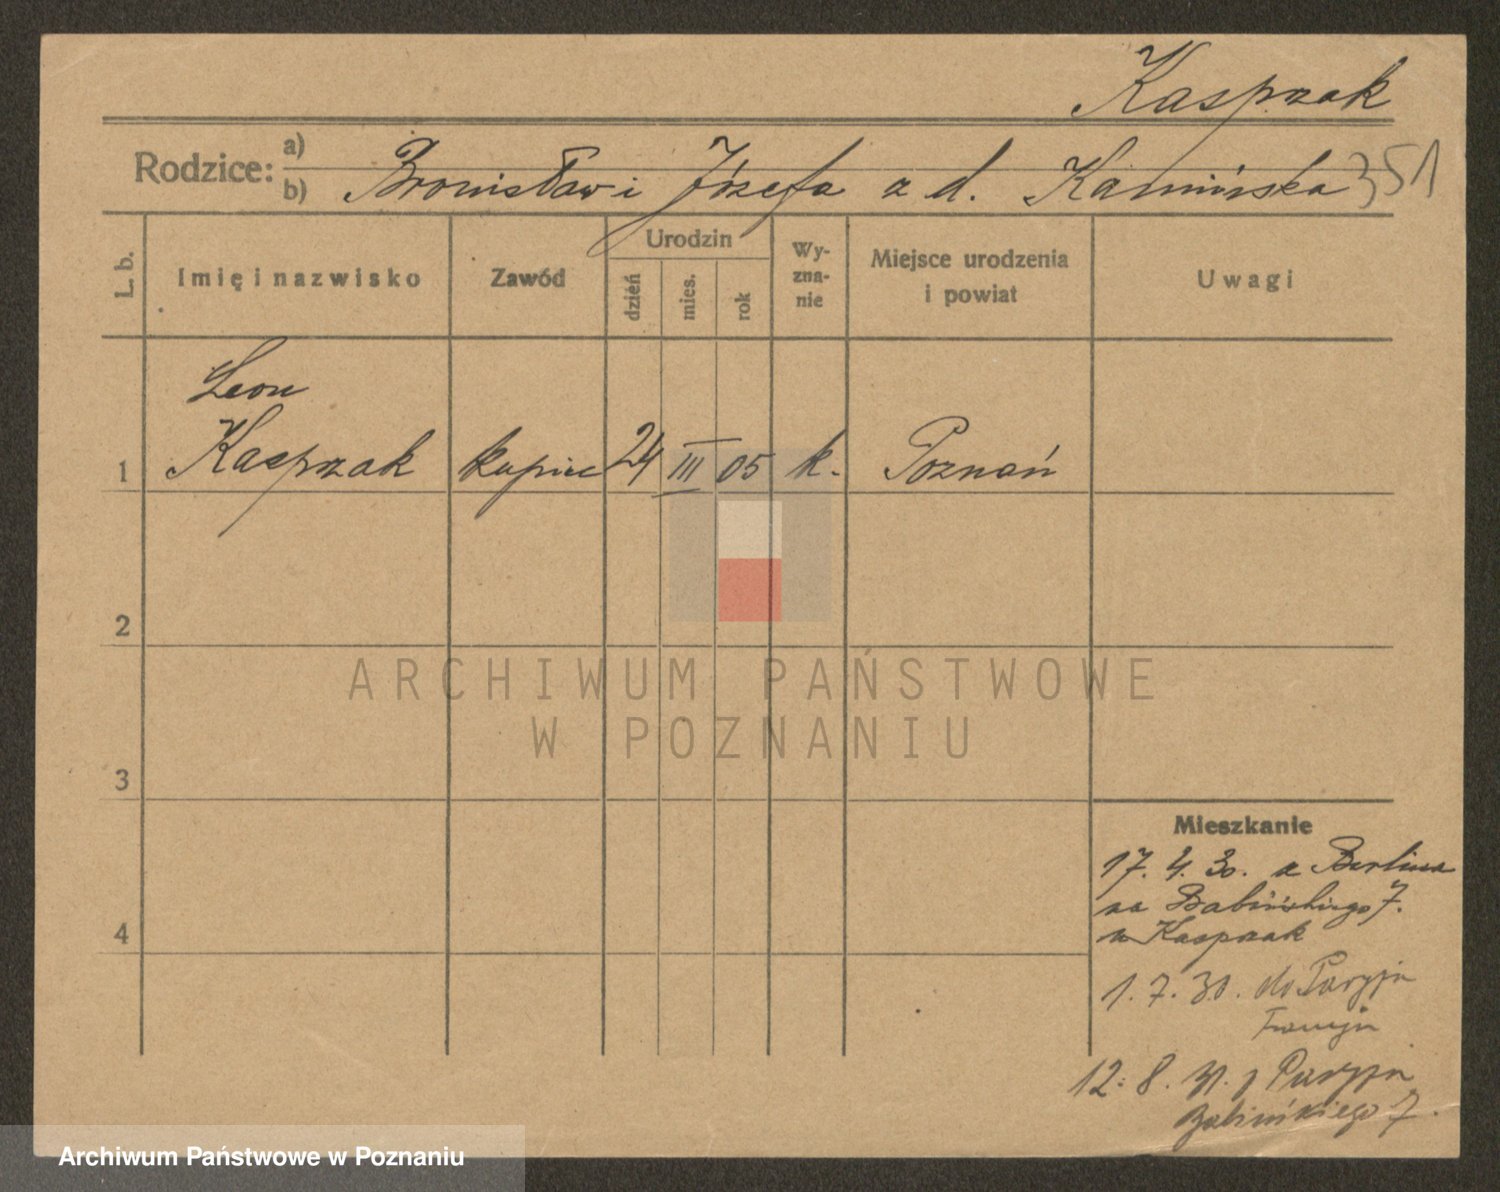 Kasprzak
Rodzice: a)
b) Bronisław i Józefa z d. Kamińska 351
L. b.
Imię i nazwisko
Zawód
Urodzin
dzień
mies.
rok
Wy-
zna-
nie
Miejsce urodzenia
i powiat
Uwagi
Leon
1 Kasprzak kupiec 24 III 05 k. Poznań
2
3
4
ARCHIWUM PAŃSTWOWE
W POZNANIU
Mieszkanie
17. 4. 30. z Berlina
na Babińskiego 7.
u Kasprzak
1. 7. 30. do Paryża
Francja
12. 8. 31. z Paryża
Babińskiego 7.
Archiwum Państwowe w Poznaniu